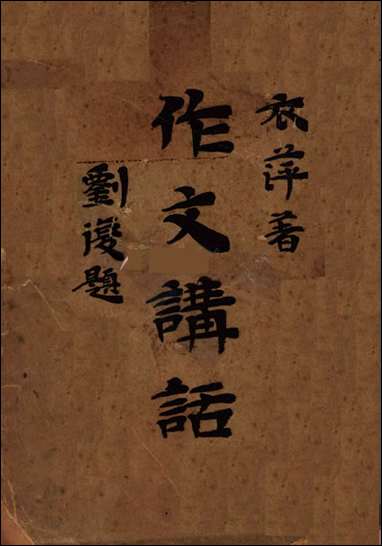 衣萍著
作文講話
劉復題